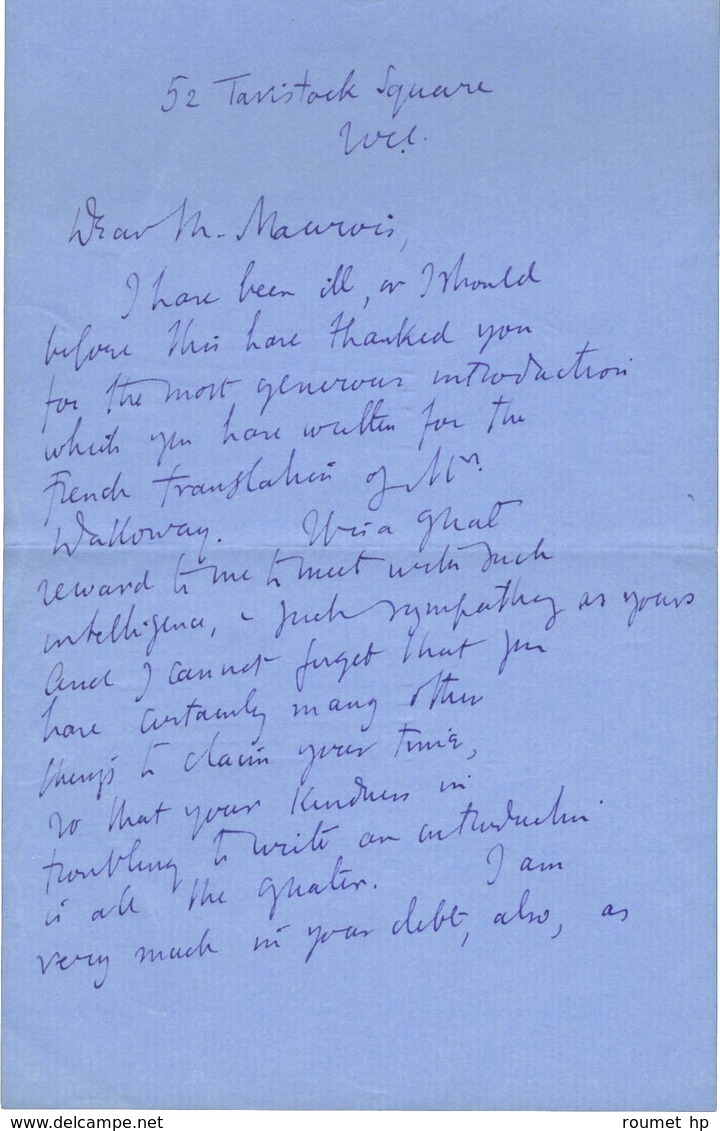 52 Tavistock Square
WC1.
Dear M. Maurois,
I have been ill, or I should
before this have thanked you
for the most generous introduction
which you have written for the
French translation of Mrs.
Dalloway. It is a great
reward to me to meet with such
intelligence, & such sympathy as yours
And I cannot forget that you
have certainly many other
things to claim your time,
so that your kindness in
troubling to write an introduction
is all the greater. I am
very much in your debt, also, as
www.delcampe.net
roumet hp